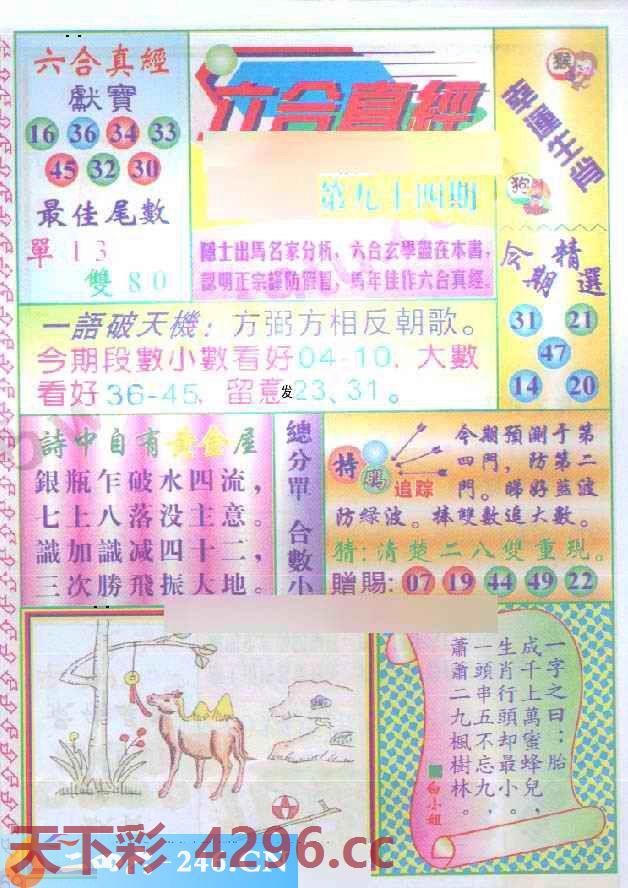 六合真經
獻寶
16 36 34 33
45 32 30
最佳尾數
單 13
雙 80
六合真經
第九十四期
隱士出馬名家分析，六合玄學盡在本書，
認明正宗謹防假冒，馬年佳作六合真經。
猴
幸運生肖
狗
今期精選
31 21
47
14 20
一語破天機：方弼方相反朝歌。
今期段數小數看好04-10，大數
看好36-45，留意23、31。
发
詩中自有黃金屋
銀瓶乍破水四流，
七上八落没主意。
識加識減四十二，
三次勝飛振大地。
總分單 合數小
特碼
追踪
今期預測于第
四門，防第二
門。睇好藍波
防緑波。捧雙數追大數。
猜：清楚二八雙重現。
贈賜：07 19 44 49 22
一字之曰：胎
成千上萬蜜蜂兒，
生肖行頭却最小。
一頭串五不忘九，
蕭蕭二九楓樹林。
白小姐
天下彩 4296.cc
246.CN